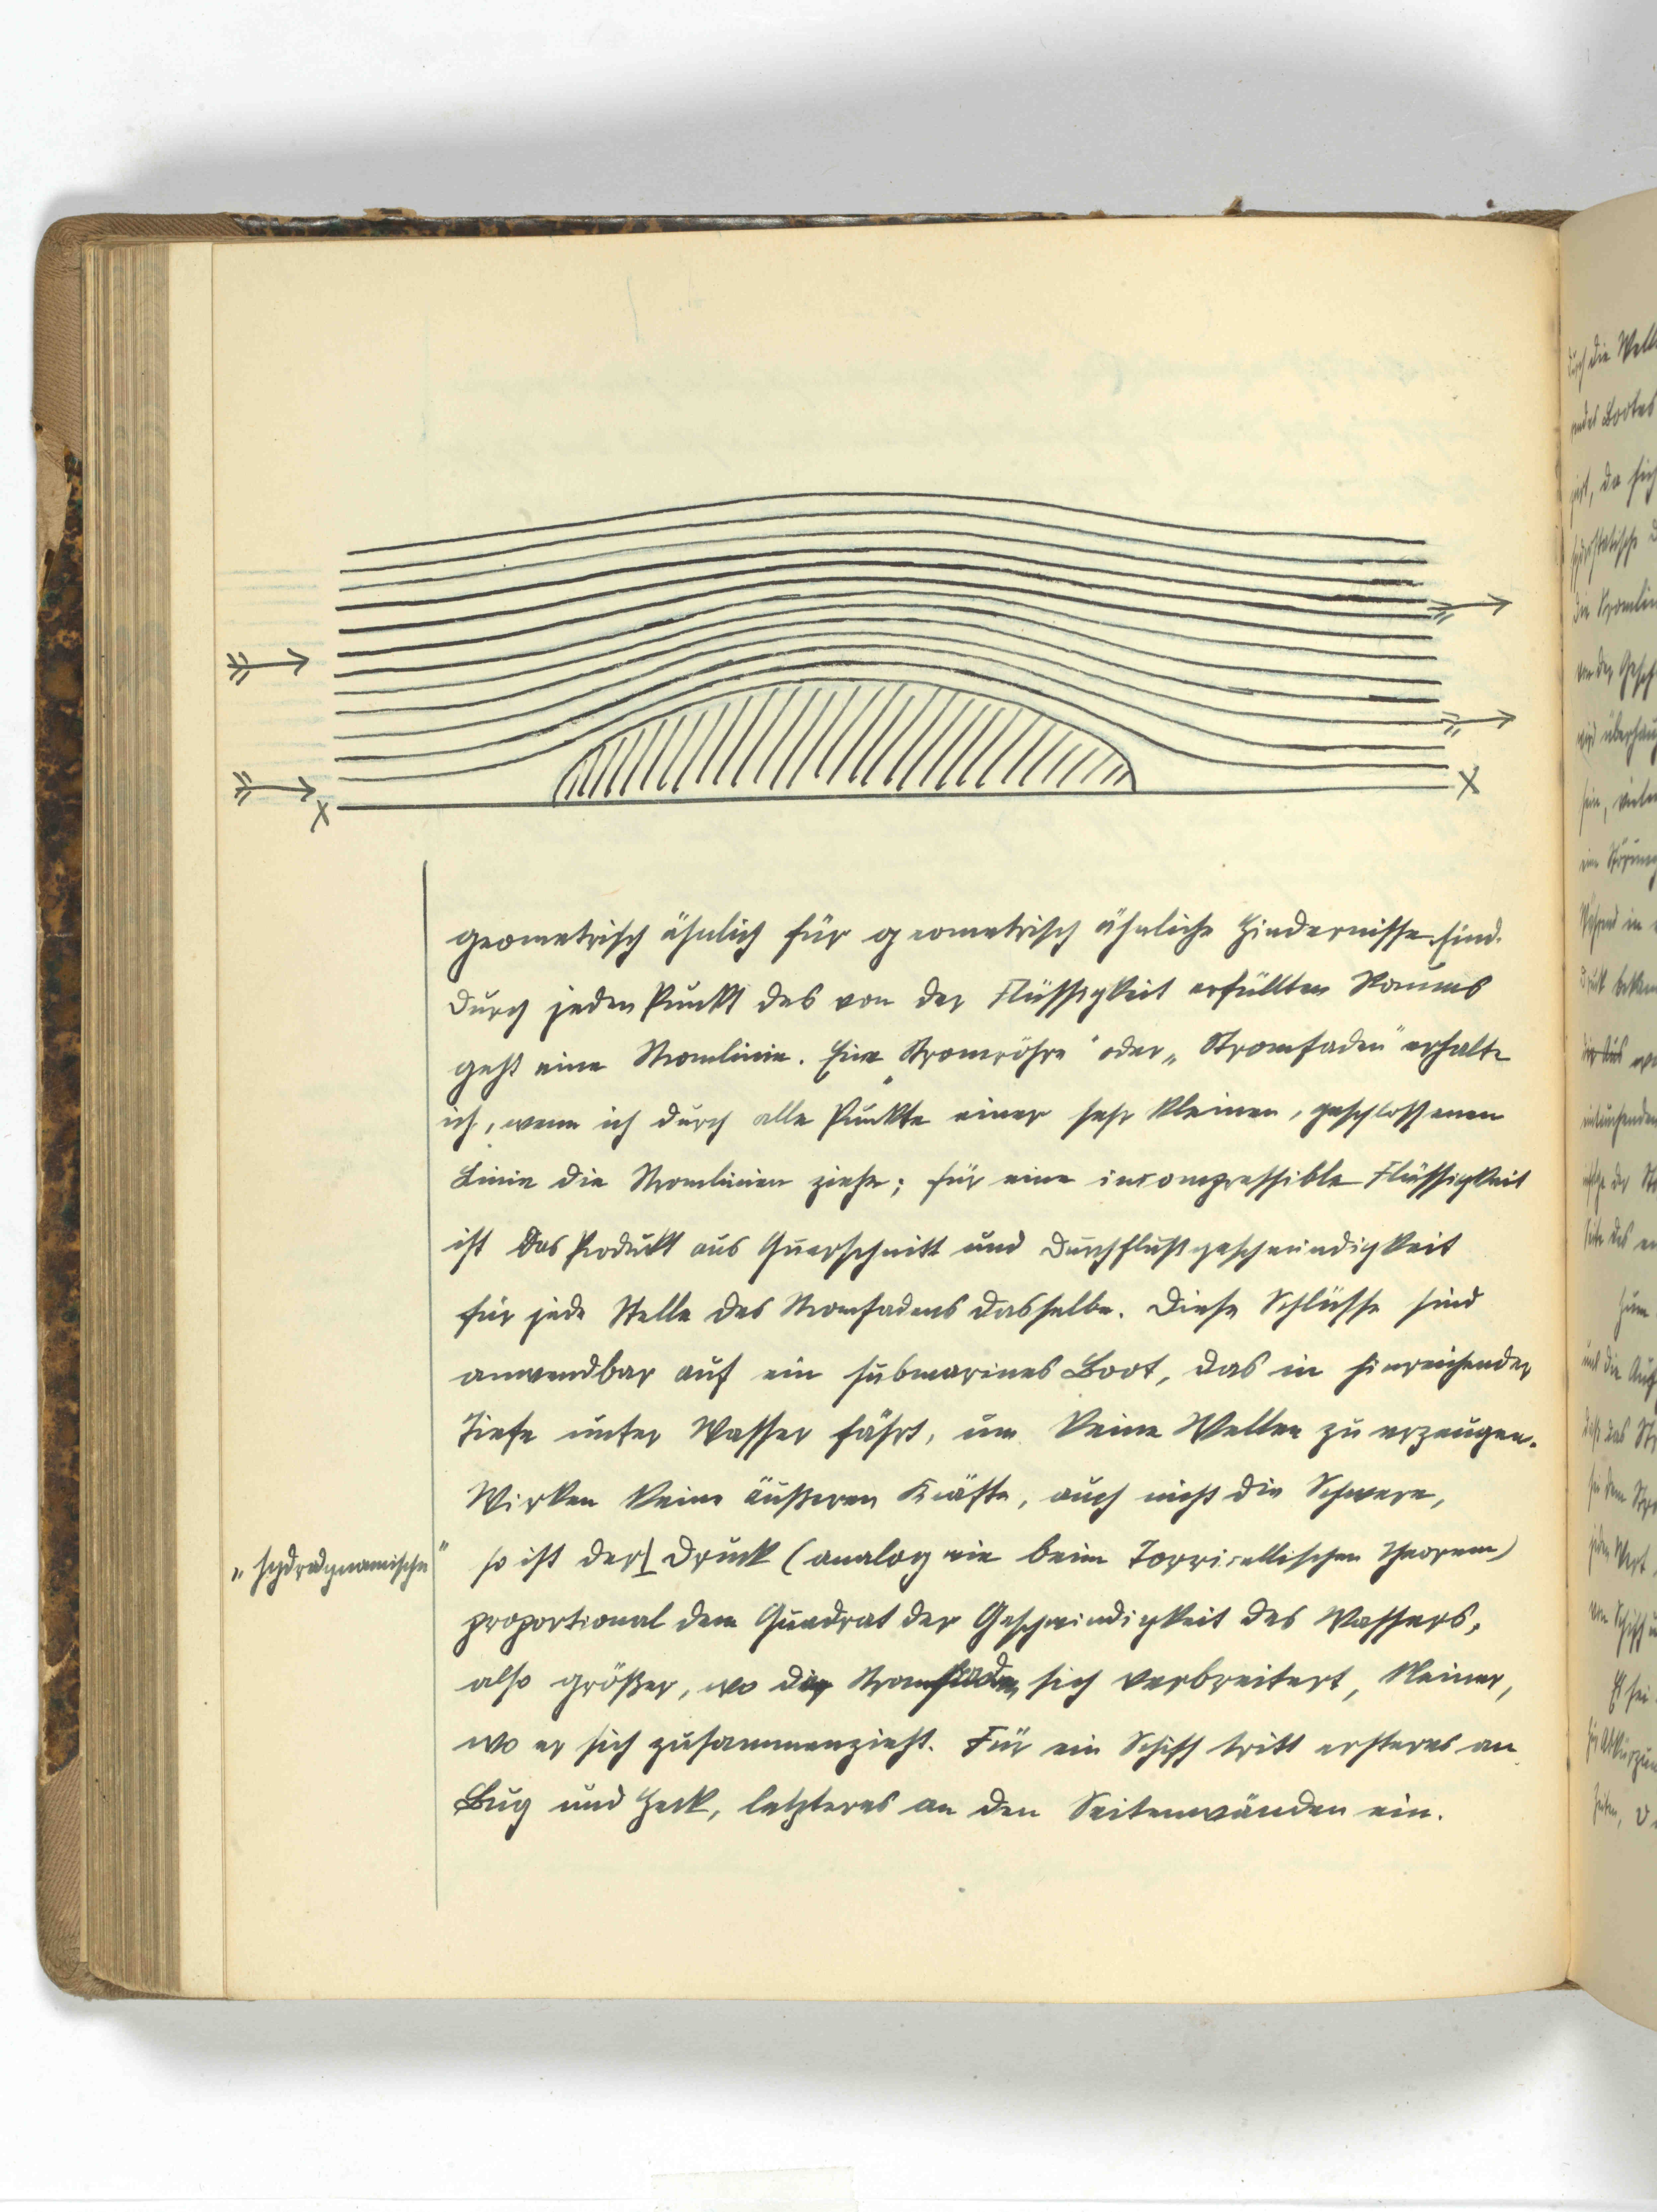 X
X
geometrisch ähnlich für geometrisch ähnliche Hindernisse sind.
Durch jeden Punkt des von der Flüssigkeit erfüllten Raumes
geht eine Stromlinie. Eine „Stromröhre" oder „Stromfaden" erhalte
ich, wenn ich durch alle Punkte einer sehr kleinen, geschlossenen
Linie die Stromlinien ziehe; für eine incompressible Flüssigkeit
ist das Produkt aus Querschnitt und Durchflußgeschwindigkeit
für jede Stelle des Stromfadens dasselbe. Diese Schlüsse sind
anwendbar auf ein submarines Boot, das in hinreichender
Tiefe unter Wasser fährt, um keine Wellen zu erzeugen.
Wirken keine äußeren Kräfte, auch nicht die Schwere,
„hydrodynamische"
so ist der Druck (analog wie beim Torricellischen Theorem)
proportional dem Quadrat der Geschwindigkeit des Wassers,
also größer, wo der Stromfaden sich verbreitert, kleiner,
wo er sich zusammenzieht. Für ein Schiff tritt ersteres an
Bug und Heck, letzteres an den Seitenwänden ein.
durch die
des Bootes
da sich
die Stromlin
von der
wird überhaup
sein,
Zum
und die
von Schiff
Es sei